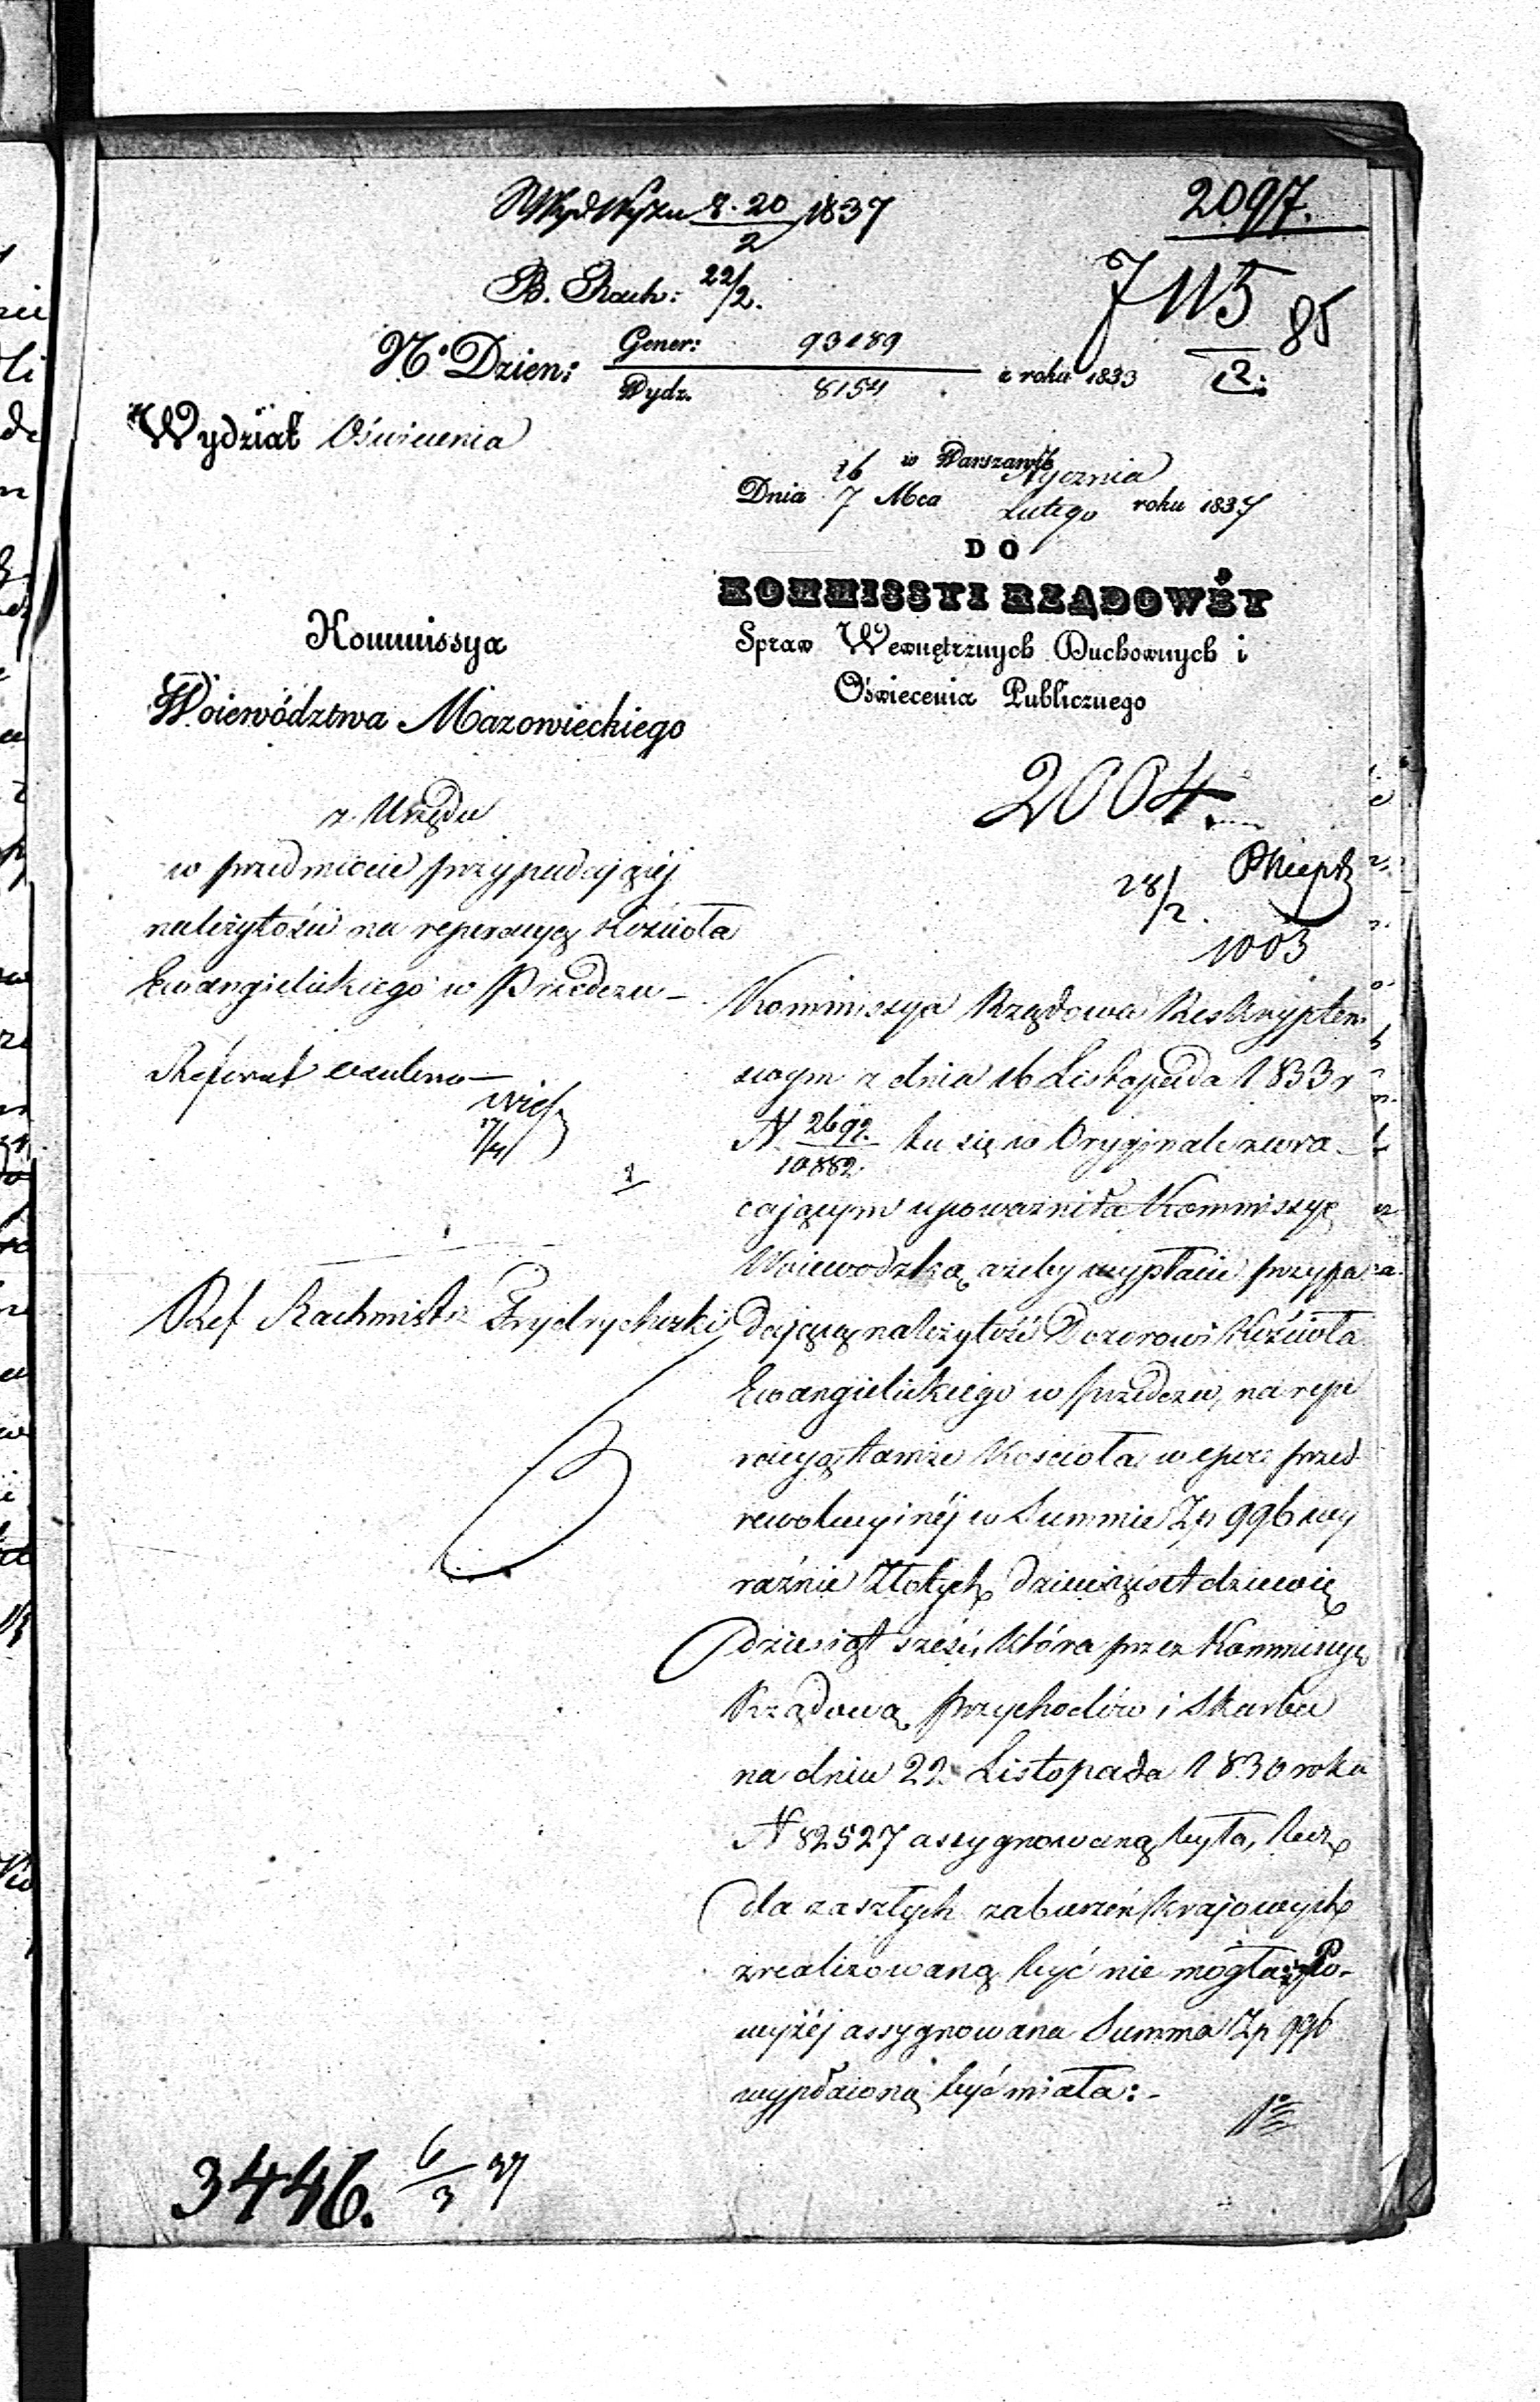 8. 20/2 1837
2097.
B. Rach: 22/2.
7115
85
2.
N° Dzien: Gener: 93189
Wydz. 8154 z roku 1833
Wydział Oświecenia
w Warszawie
Dnia 26 Stycznia
7 Mca Lutego roku 1837
DO
KOMMISSYI RZĄDOWÉY
Spraw Wewnętrznych Duchownych i
Oświecenia Publicznego
Kommissya
Woiewództwa Mazowieckiego
2004.
28/2.
1003
z Urzędu
w przedmiocie przypadaiącéj
należytości na reperacyą Kościoła
Ewangielickiego w Przedczu –
Referat
Ref Rachmistrz Frydrychski
Kommissya Rządowa Reskryptem
swym z dnia 16 Listopada 1833 r
N 2692/10882. tu się w Oryginale zwra-
cającym upoważniła Kommissyę
Woiewodzką, ażeby wypłacić przypa
dającą należytość Dozorowi Kościoła
Ewangielickiego w Przedczu, na repe
racyą tamże Kościoła w epoce przed
rewolucyinéj w Summie Zp 996 wy
raźnie Złotych dziewięćset dziewię
dziesiąt sześć, która przez Kommissyę
Rządową Przychodów i Skarbu
na dniu 22. Listopada 1830 roku
N 82527 assygnowaną była, lecz
dla zaszłych zaburzeń krajowych
zrealizowaną być nie mogła: Po-
wyżéj assygnowana Summa Zp 996
wypłaconą być miała:-
3446. 6/3 37